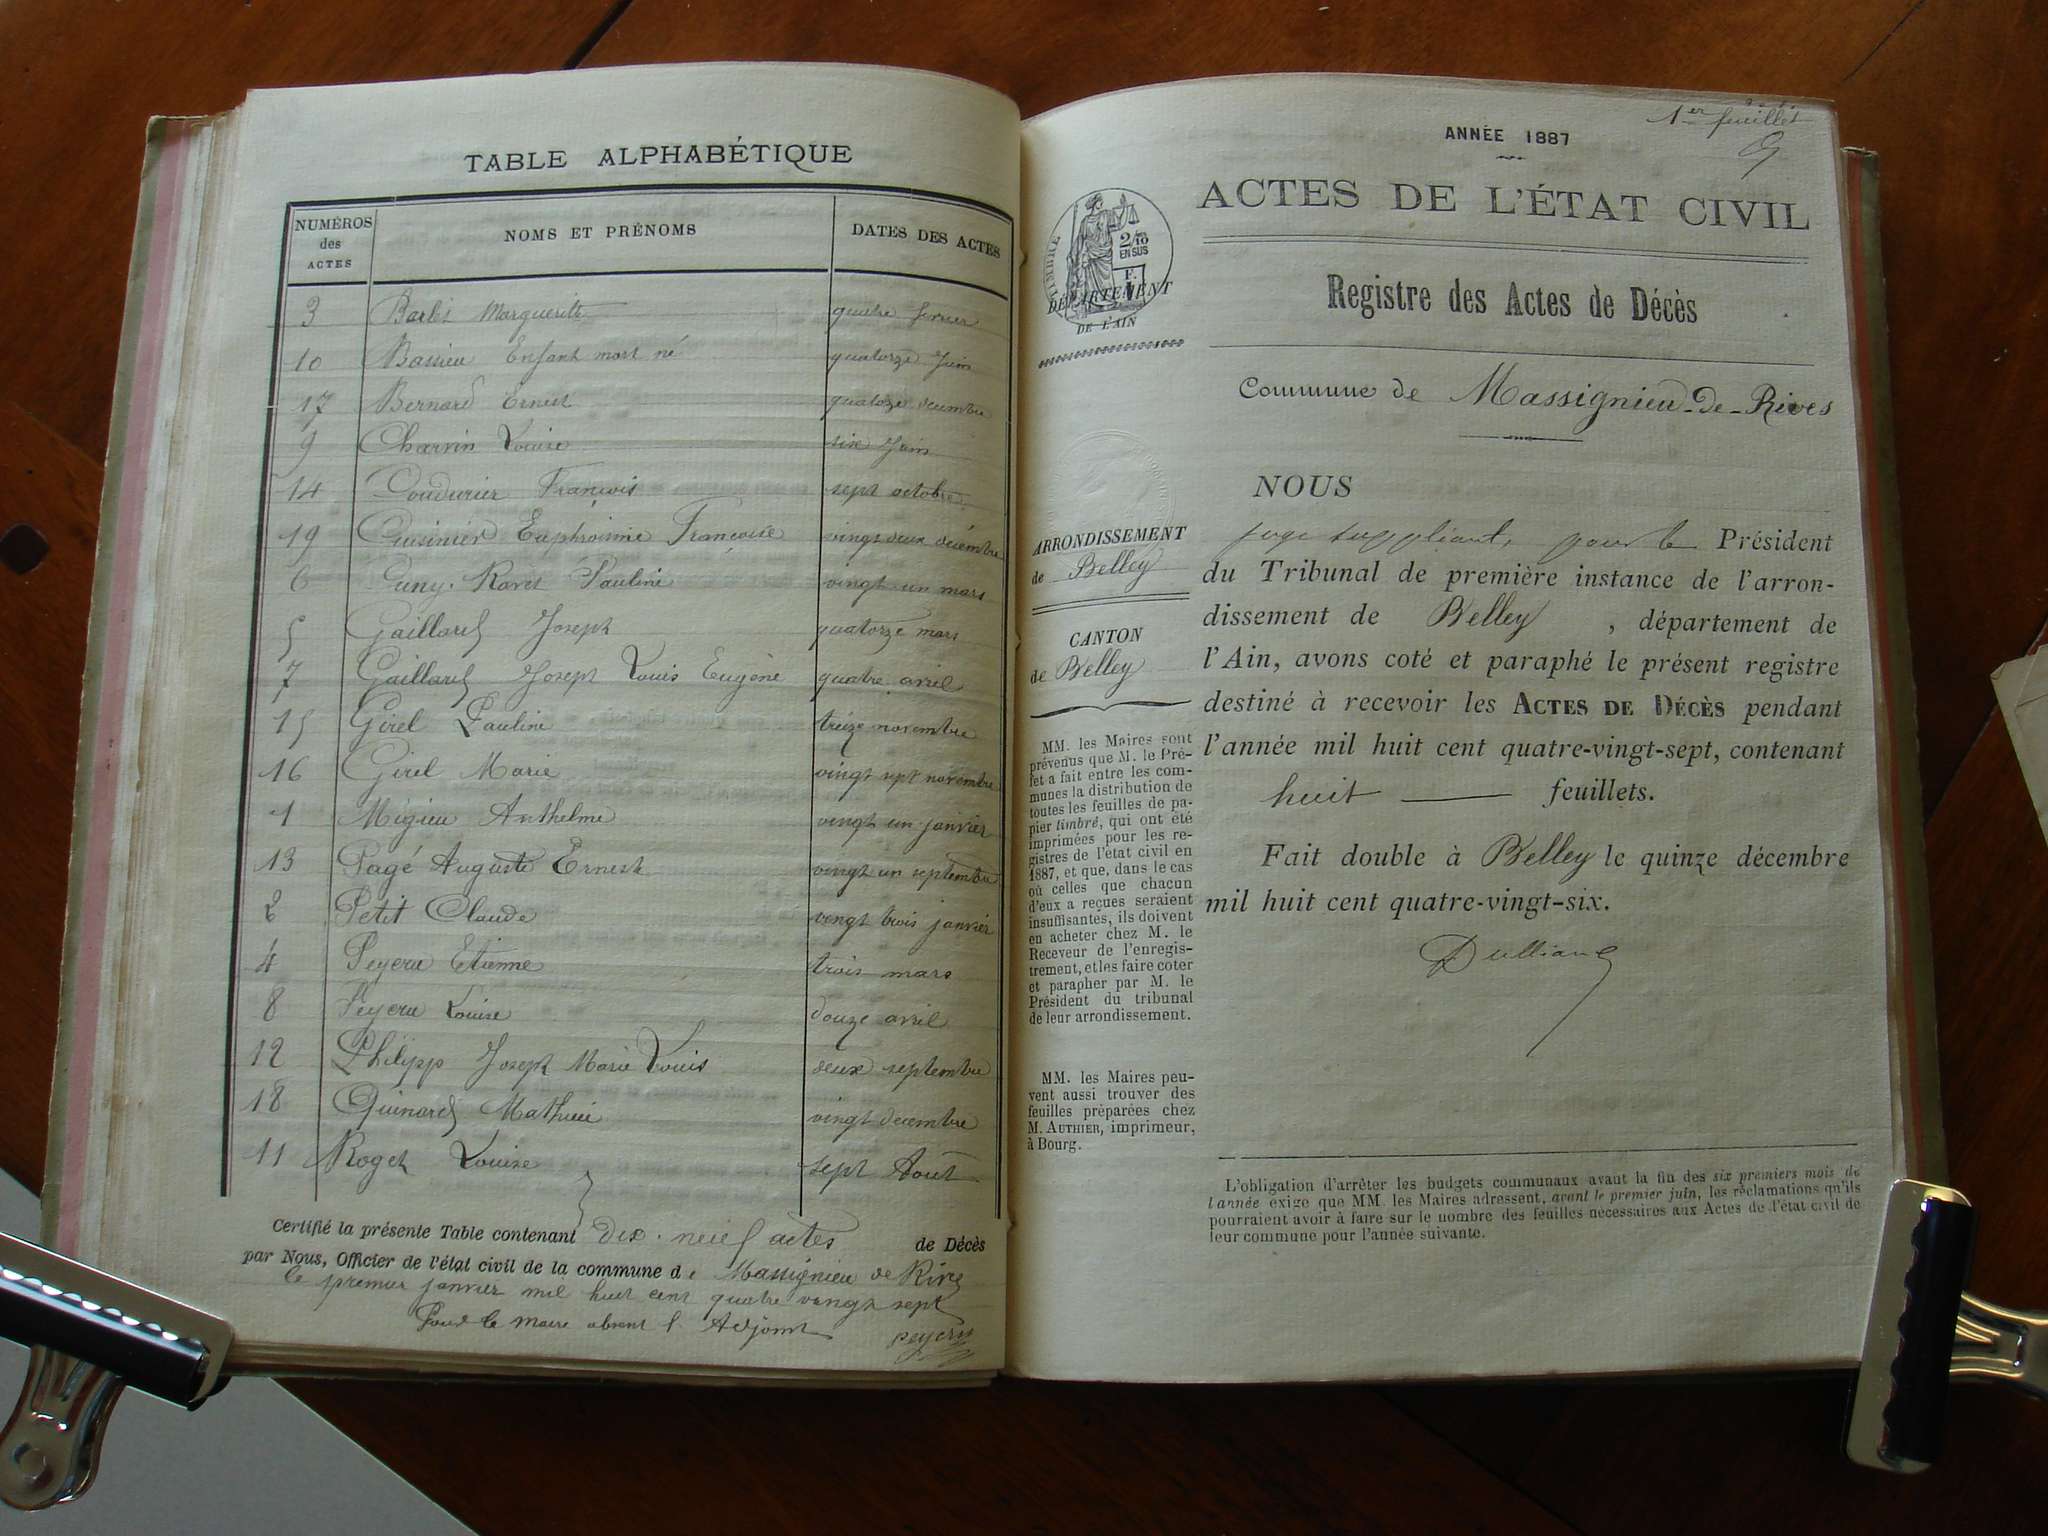 TABLE ALPHABÉTIQUE
NUMÉROS des ACTES NOMS ET PRÉNOMS DATES DES ACTES
3 Marguerite quatre
10 Bassieu Enfant mort né quatorze Juin
17 Bernard Ernest quatorze decembre
9 Charvin Louise six Juin
14 Coudurier François sept octobre
19 Cuisinier Euphrosine Françoise vingt deux décembre
6 Cuny-Ravet Pauline vingt un mars
5 Gaillard Joseph quatorze mars
7 Gaillard Joseph Louis Eugène quatre avril
15 Girel Pauline treize novembre
16 Girel Marie vingt sept novembre
1 Mizieu Anthelme vingt un janvier
13 Pagé Auguste Ernest vingt un septembre
2 Petit Claude vingt trois janvier
4 Peycru Etienne trois mars
8 Peycru Louise douze avril
12 Philipp Joseph Marie Louis deux septembre
18 Quinard Mathieu vingt decembre
11 Roget Louise sept Aout
Certifié la présente Table contenant dix-neuf actes de Décès
par Nous, Officier de l'état civil de la commune de Massignieu de Rives
le premier janvier mil huit cent quatre vingt sept
Pour le Maire absent l'Adjoint
Peycru
1er feuillet
ANNÉE 1887
ACTES DE L'ÉTAT CIVIL
TIMBRE
2/10
EN SUS
F.
DÉPARTEMENT
DE L'AIN
Registre des Actes de Décès
Commune de Massignieu-de-Rives
ARRONDISSEMENT
de Belley
CANTON
de Belley
MM. les Maires sont
prévenus que M. le Pré-
fet a fait entre les com-
munes la distribution de
toutes les feuilles de pa-
pier timbré, qui ont été
imprimées pour les re-
gistres de l'état civil en
1887, et que, dans le cas
où celles que chacun
d'eux a reçues seraient
insuffisantes, ils doivent
en acheter chez M. le
Receveur de l'enregis-
trement, et les faire coter
et parapher par M. le
Président du tribunal
de leur arrondissement.
MM. les Maires peu-
vent aussi trouver des
feuilles préparées chez
M. AUTHIER, imprimeur,
à Bourg.
NOUS
juge suppléant, pour le Président
du Tribunal de première instance de l'arron-
dissement de Belley, département de
l'Ain, avons coté et paraphé le présent registre
destiné à recevoir les ACTES DE DÉCÈS pendant
l'année mil huit cent quatre-vingt-sept, contenant
huit feuillets.
Fait double à Belley le quinze décembre
mil huit cent quatre-vingt-six.
Dulliand
L'obligation d'arrêter les budgets communaux avant la fin des six premiers mois de
l'année exige que MM. les Maires adressent, avant le premier juin, les réclamations qu'ils
pourraient avoir à faire sur le nombre des feuilles nécessaires aux Actes de l'état civil de
leur commune pour l'année suivante.